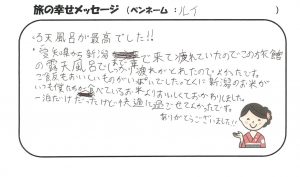 旅の幸せメッセージ (ペンネーム:ルイ)
・露天風呂が最高でした!!
・宮城県から新潟まで来て疲れていたのでこの旅館
の露天風呂でしっかり疲れがとれたのでよかったです。
ご飯もおいしいものがいっぱいでした。とくに新潟のお米が
いつも僕たちが食べているお米よりおいしくておかわりしました。
一泊だけだったけど快適に過ごせてよかったです。
ありがとうございました!!